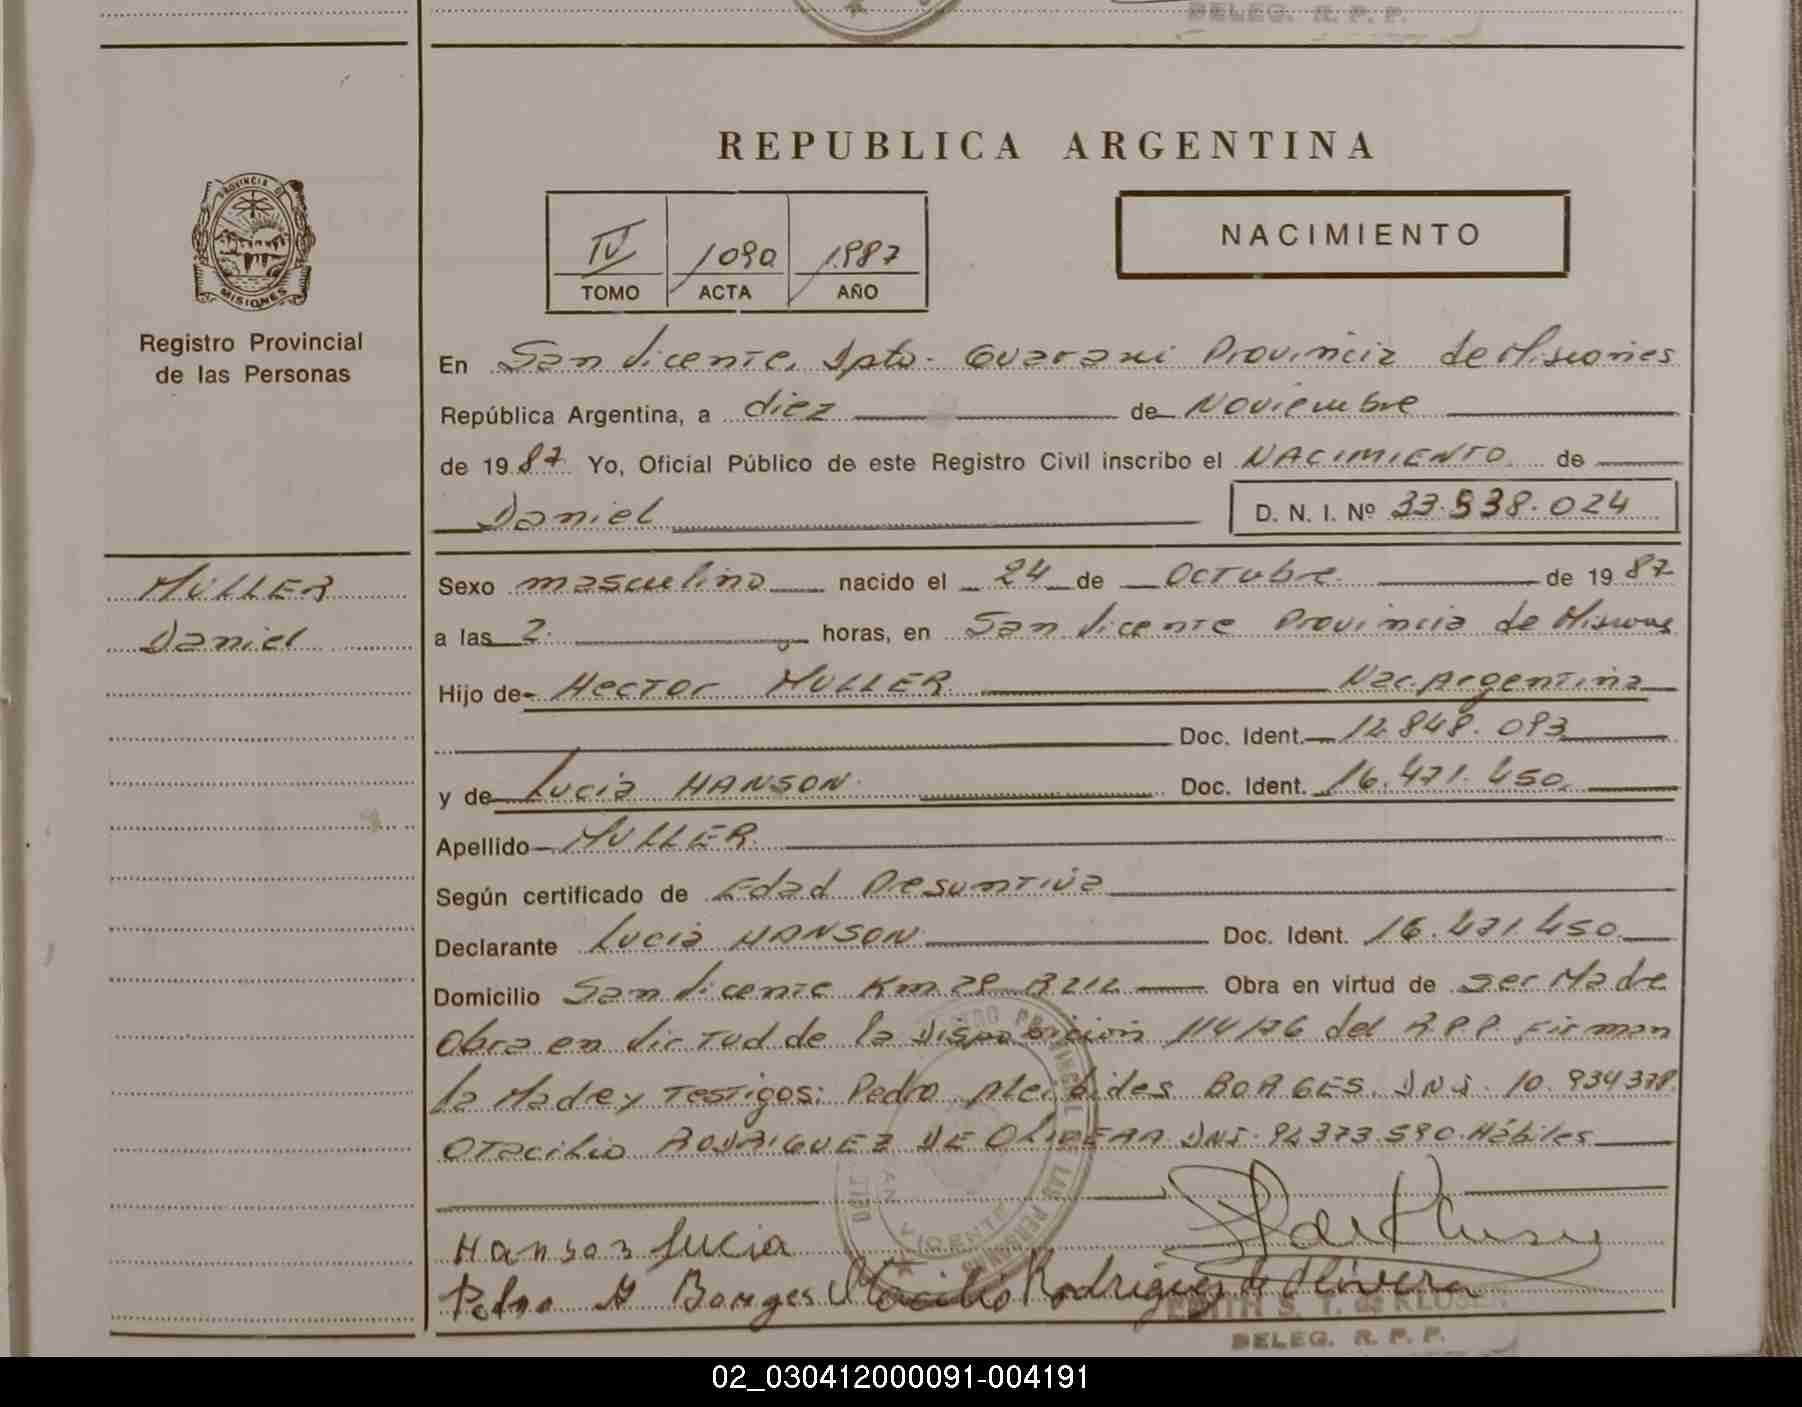 DELEG. R. P. P.
REPUBLICA ARGENTINA
PROVINCIA DE
MISIONES
Registro Provincial
de las Personas
IV 1090 1987
TOMO ACTA AÑO
NACIMIENTO
En San Vicente, Dpto. Guarani Provincia de Misiones
República Argentina, a diez de Noviembre
de 1987 Yo, Oficial Público de este Registro Civil inscribo el NACIMIENTO de
Daniel D. N. I. Nº 33.538.024
MULLER
Daniel
Sexo masculino nacido el 24 de Octubre de 1987
a las 2 horas, en San Vicente Provincia de Misiones
Hijo de Hector MULLER Nac. Argentina
Doc. Ident. 12.848.093
y de Lucia HANSON Doc. Ident. 16.471.450
Apellido MULLER
Según certificado de Edad Presuntiva
Declarante Lucia HANSON Doc. Ident. 16.471.450
Domicilio San Vicente Km 28 R212 Obra en virtud de ser Madre
Obra en virtud de la Disposicion 114/76 del R.P.P. Firman
la Madre y Testigos: Pedro Alcibides BORGES. DNI. 10.934378
Otacilio RODRIGUEZ DE OLIVERA DNI. 92373590 Hábiles
Hanson Lucia
Pedro A Borges Otacilio Rodriguez de Olivera
EDITH S. T. de KLUSEN
DELEG. R. P. P.
02_030412000091-004191